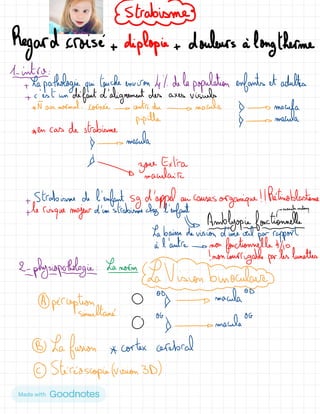 Strabisme
Regard croisé + diplopie + douleurs à long therme
1-intro:
+ La pathologie qui touche environ 4% de la population enfantes et adultes
+ c'est un défaut d'alignement des axes visuels
centre du → macula → macula
pupille → macula
*en cas de strabisme
→ macula
→ zone Extra
maculaire
+ Strabisme de l'enfant sg d'appel au causes organique !! Rétinoblastome
+ le risque majeur d'un strabisme chez l'enfant
Amblyopie fonctionnelle
La baisse de vision d'une œil par rapport
à l'autre → non fonctionnelle 4/10
! non corrigable par les lunettes
2-physiopathologie La norm La Vision binoculaire
Ⓐ perception OD → macula OD
simultané OG → macula OG
Ⓑ La fusion * cortex cérébral
Ⓒ Stéréoscopie (vision 3D)
Made with Goodnotes